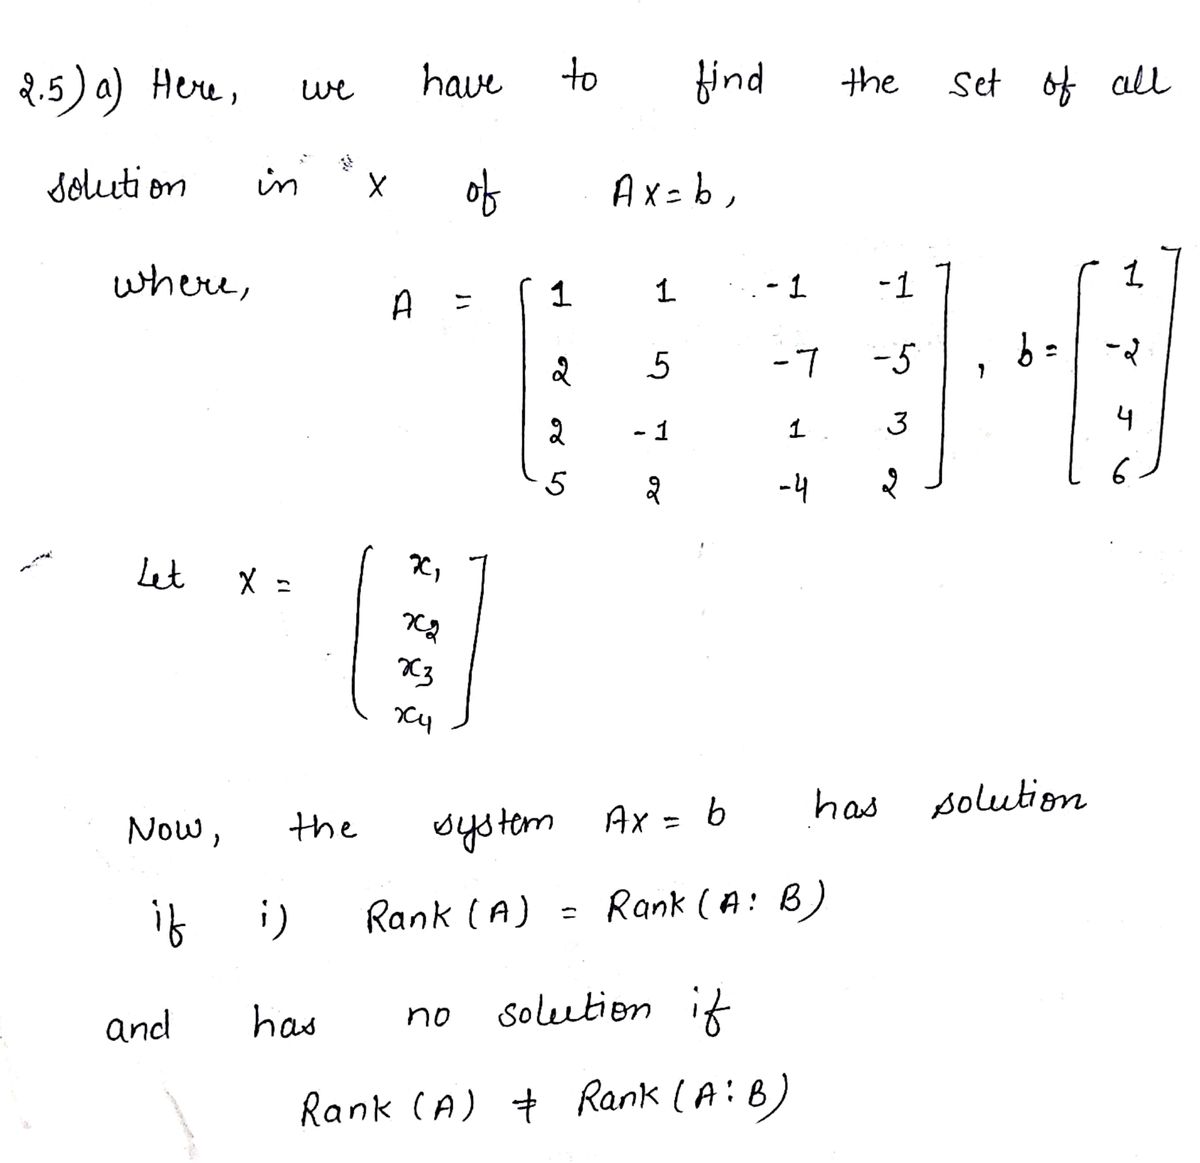 2.5) a) Here, we have to find the set of all
solution in x of Ax = b,
where, A = [ 1 1 -1 -1 ] , b = [ 1 ]
[ 2 5 -7 -5 ] [ -2 ]
[ 2 -1 1 3 ] [ 4 ]
[ 5 2 -4 2 ] [ 6 ]
Let x = [ x1 ]
[ x2 ]
[ x3 ]
[ x4 ]
Now, the system Ax = b has solution
if i) Rank (A) = Rank (A : B)
and has no solution if
Rank (A) ≠ Rank (A : B)